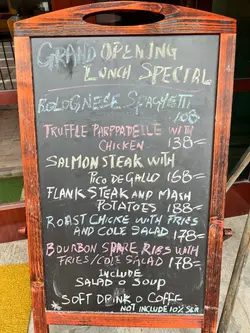 GRAND OPENING
LUNCH SPECIAL
BOLOGNESE SPAGHETTI
168
TRUFFLE PARPPADELLE WITH
CHICKEN 138=
SALMON STEAK WITH
PICO DE GALLO 168=
FLANK STEAK AND MASH
POTATOES 188=
ROAST CHICKE WITH FRIES
AND COLE SALAD 178=
BOURBON SPARE RIBS WITH
FRIES/COLE SALAD 178=
INCLUDE
SALAD O SOUP
SOFT DRINK O COFFE
NOT INCLUDE 10% SER